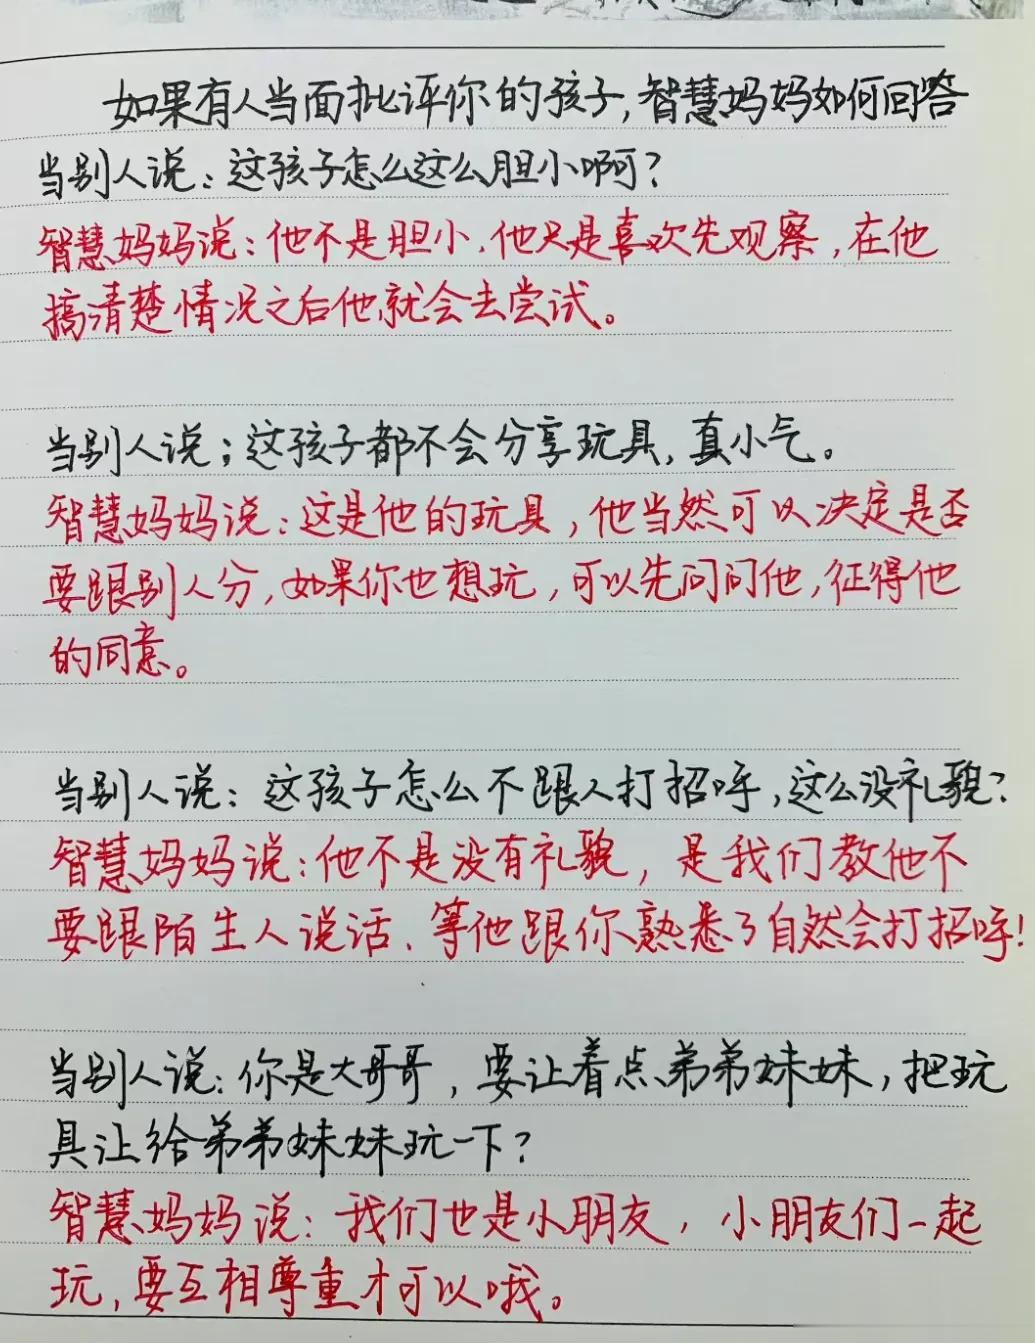 如果有人当面批评你的孩子,智慧妈妈如何回答
当别人说:这孩子怎么这么胆小啊?
智慧妈妈说:他不是胆小,他只是喜欢先观察,在他
搞清楚情况之后他就会去尝试。
当别人说;这孩子都不会分享玩具,真小气。
智慧妈妈说:这是他的玩具,他当然可以决定是否
要跟别人分,如果你也想玩,可以先问问他,征得他
的同意。
当别人说:这孩子怎么不跟人打招呼,这么没礼貌?
智慧妈妈说:他不是没有礼貌,是我们教他不
要跟陌生人说话、等他跟你熟悉了自然会打招呼!
当别人说:你是大哥哥,要让着点弟弟妹妹,把玩
具让给弟弟妹妹玩一下?
智慧妈妈说:我们也是小朋友,小朋友们一起
玩,要互相尊重才可以哦。